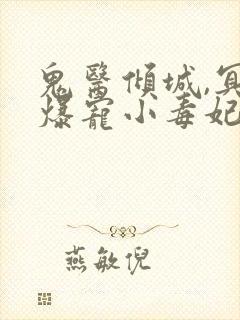 鬼醫傾城,冥
爆寵小毒妃
燕敏倪